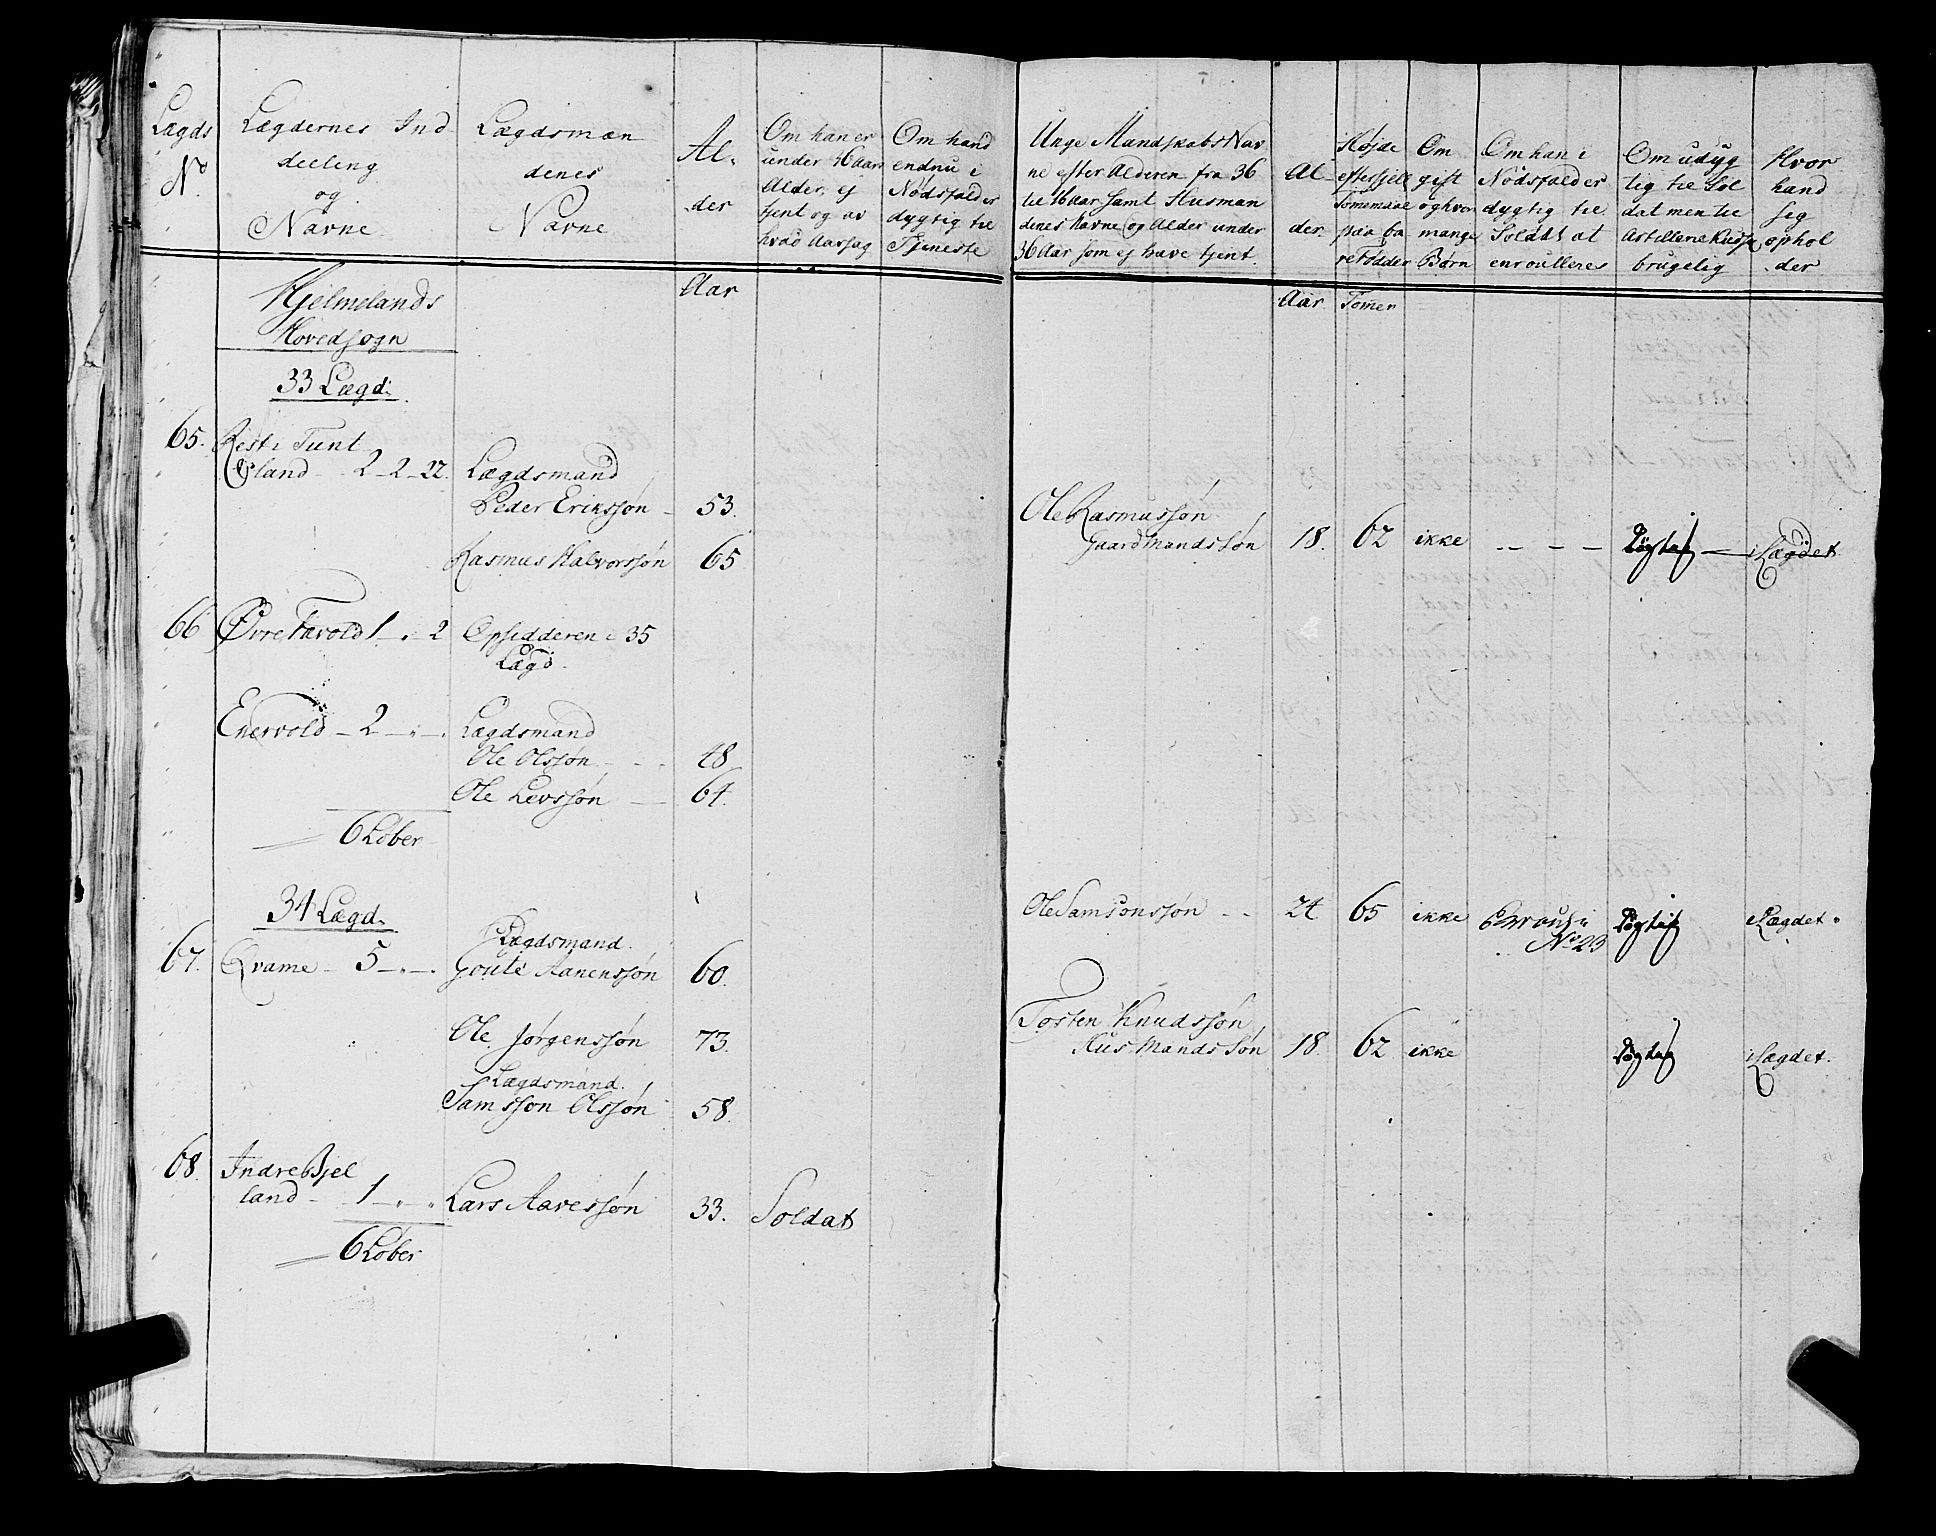 Lægds
No.
Lægdernes Ind
deeling
og
Navne
Lægdsmæn
denes
Navne
Al-
der
Om han er
under 36 Aars
Alder, ej
tjent og av
hvad Aarsag
Om hand
endnu i
Nødsfalder
dygtig til
Tjeneste
Unge MandskabsNav
ne efter Alderen fra 36
til 16 Aar samt Husmæn
denes Navne og Alder under
36 Aar som ej have tjent.
Al-
der.
Højde
efter sjell
Tomemaal
paa ba
re Fødder
Om
gift
og hvor
mange
Børn
Om han i
Nødsfalder
dygtig til
Soldat at
enroulleres
Om udyg
tig til Sol
dat men til
Artillerie Kudsk
brugelig
Hvor
hand
sig
ophol
der
Hjelmelands
Hovedsogn
Aar
Aar
Tomer
33 Lægd.
65.
Rest: Tunt
land - 2 - 2 - 22.
Lægdsmand
Peder Erikssøn - 53.
Ole Rasmussøn
Gaardmandssøn 18. 62 ikke - - - Dygtig - Lægdet
Rasmus Halvorssøn 65
66 Ørre Favold 1 - " 2 Opsidderen i 35
Lægd.
Enervold - 2 - " - . Lægdsmand
Ole Olssøn - - . 48
Ole Levssøn - 64.
6 Løber
34 Lægd.
Ole Samsonssøn - - 24 65 ikke Enroul:
No 23
Dygtig Lægdet.
Lægdsmand.
67. Qvame - 5 - " - . Goute Aanenssøn 60.
Ole Jørgenssøn 73.
Tosten Knudssøn
Husmandssøn 18. 62 ikke Dygtig Lægdet.
Lægdsmand.
Samsson Olssøn 58.
68. Indre Bjel
land - 1 - " - " Lars Aavessøn 33. Soldat
6 Løber